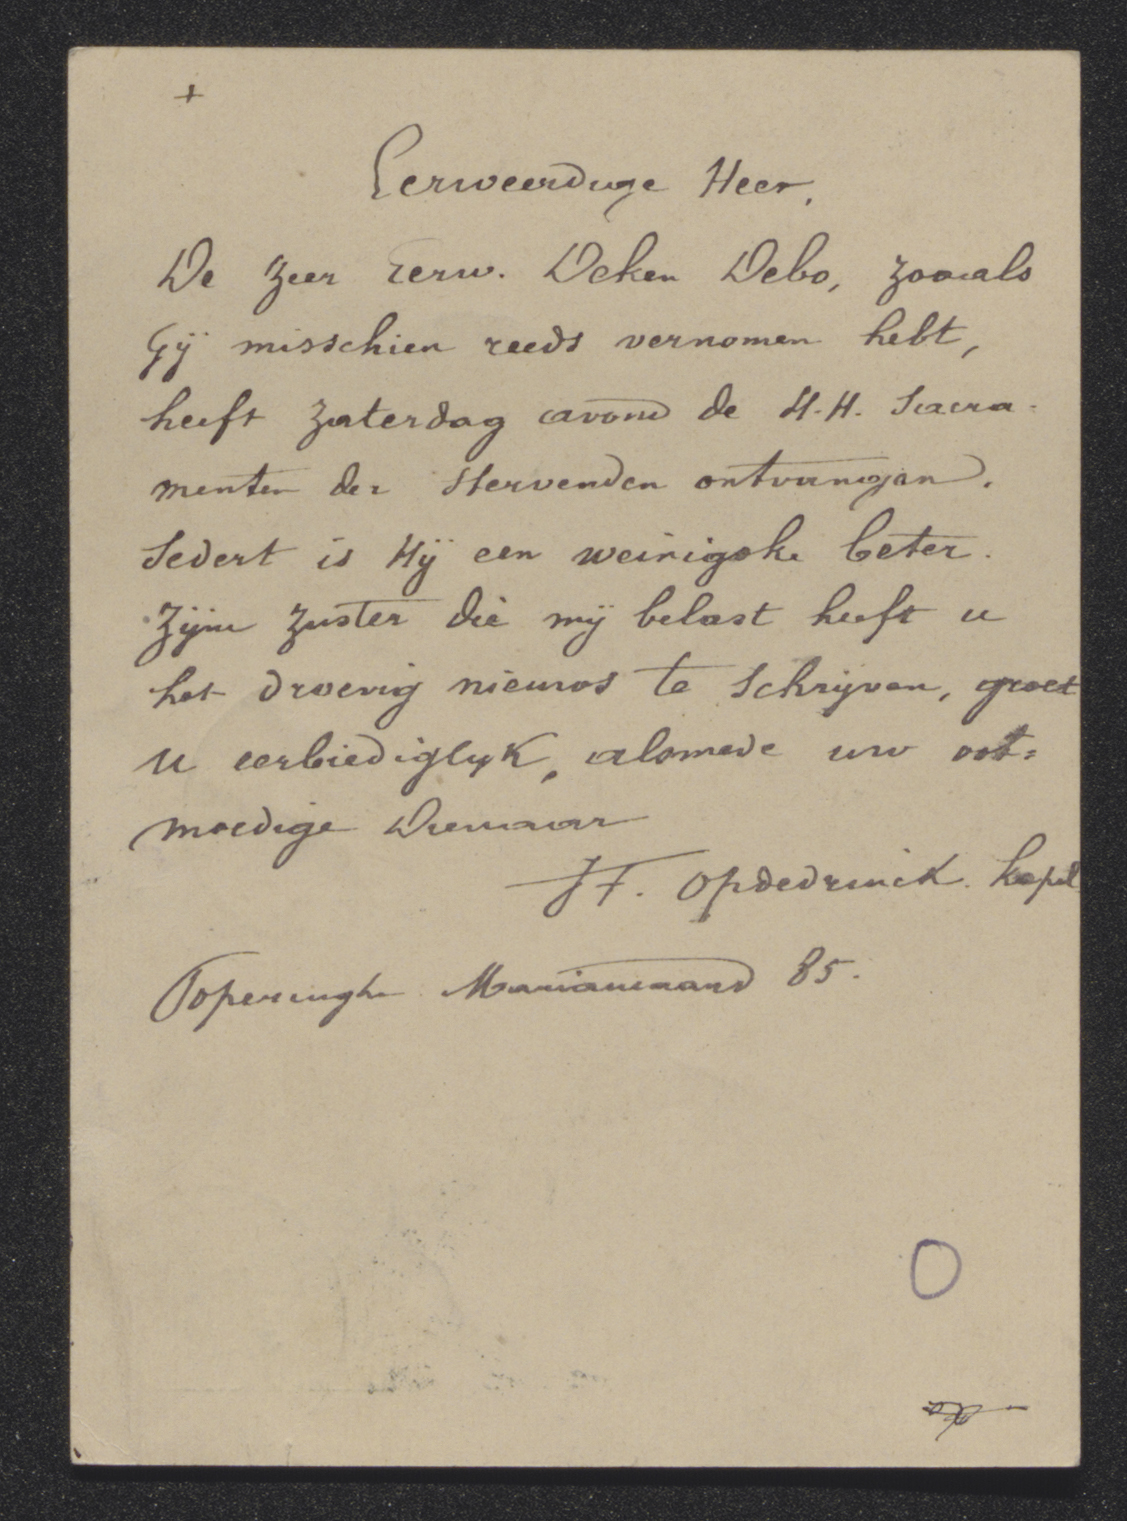 +
Eerweerdige Heer,
De zeer Eerw. Deken Debo, zooals
Gij misschien reeds vernomen hebt,
heeft zaterdag avond de H.H. Sacra-
menten der Stervenden ontvangen.
Sedert is Hij een weinigske beter.
Zijne zuster die mij belast heeft u
het droevig nieuws te schrijven, groet
U eerbiediglyk, alsmede uw oot=
moedige Dienaar
JF. Opdedrinck. kapel
Poperinghe Mariamaand 85.